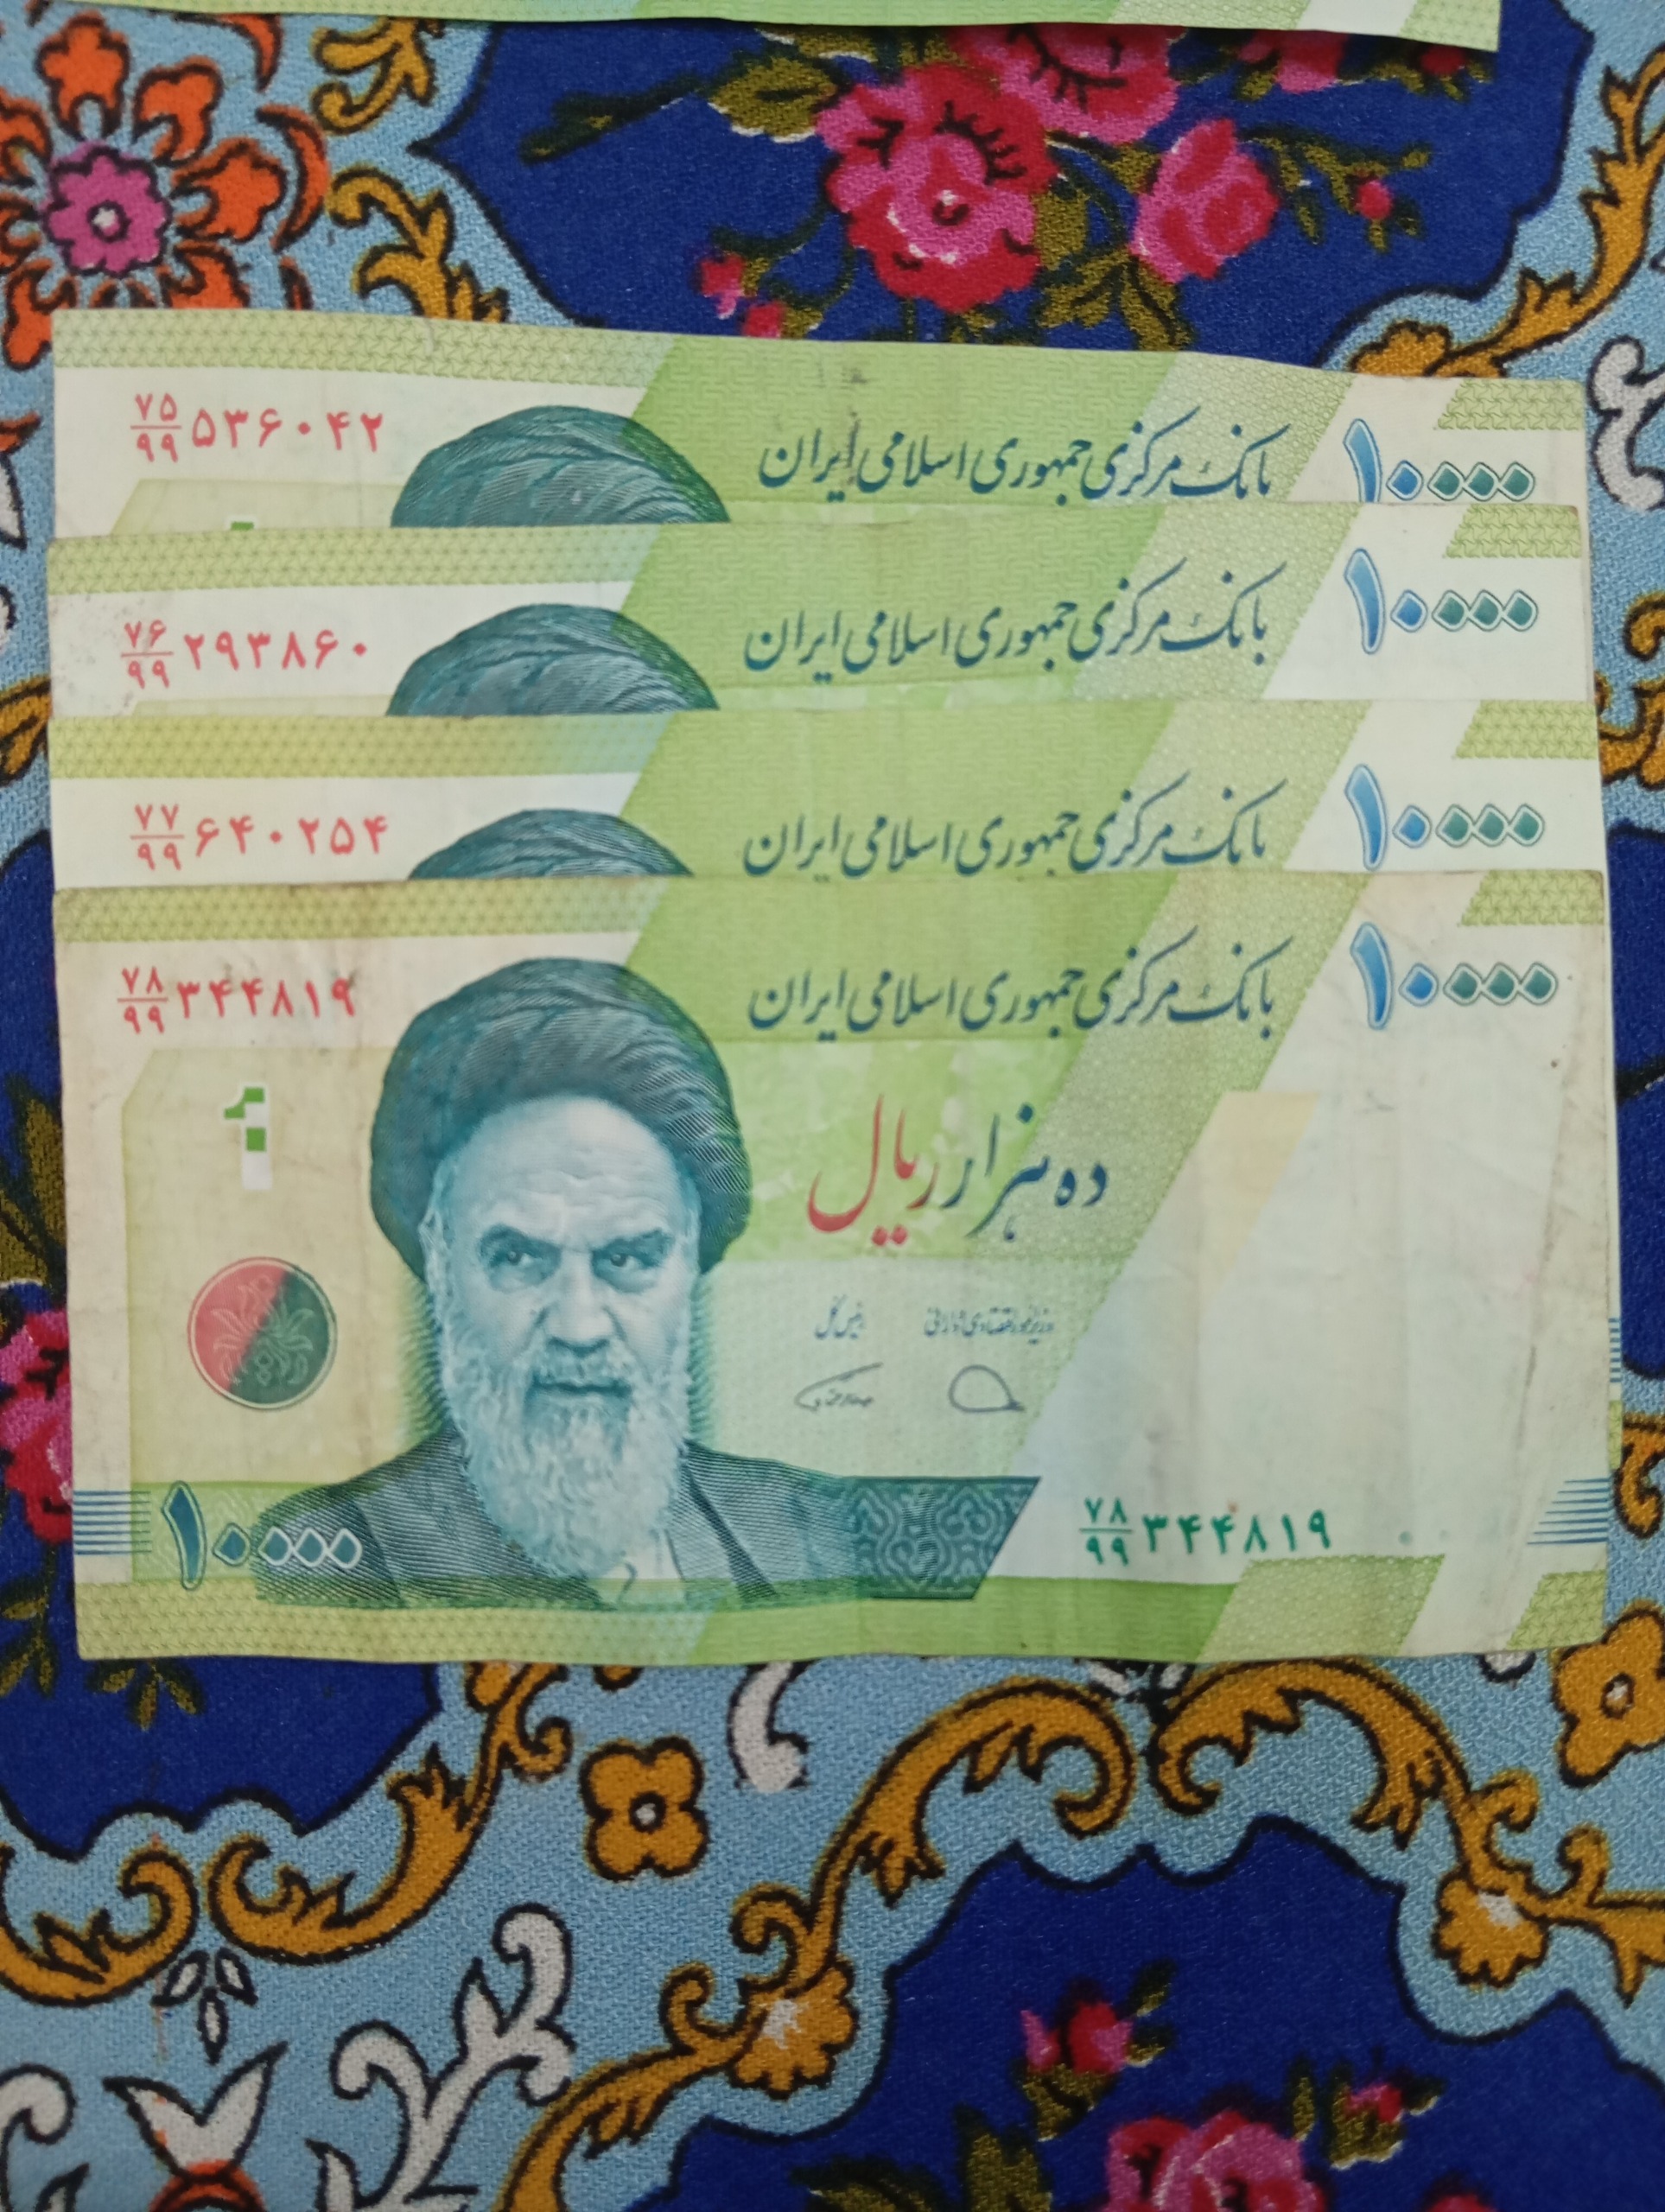 ۷۵/۹۹ ۵۳۶۰۴۲ بانک مرکزی جمهوری اسلامی ایران ۱۰۰۰۰
۷۶/۹۹ ۲۹۳۸۶۰ بانک مرکزی جمهوری اسلامی ایران ۱۰۰۰۰
۷۷/۹۹ ۶۴۰۲۵۴ بانک مرکزی جمهوری اسلامی ایران ۱۰۰۰۰
۷۸/۹۹ ۳۴۴۸۱۹ بانک مرکزی جمهوری اسلامی ایران ۱۰۰۰۰
ده هزار ریال
وزیر امور اقتصادی و دارائی رئیس کل
۱۰۰۰۰ ۷۸/۹۹ ۳۴۴۸۱۹